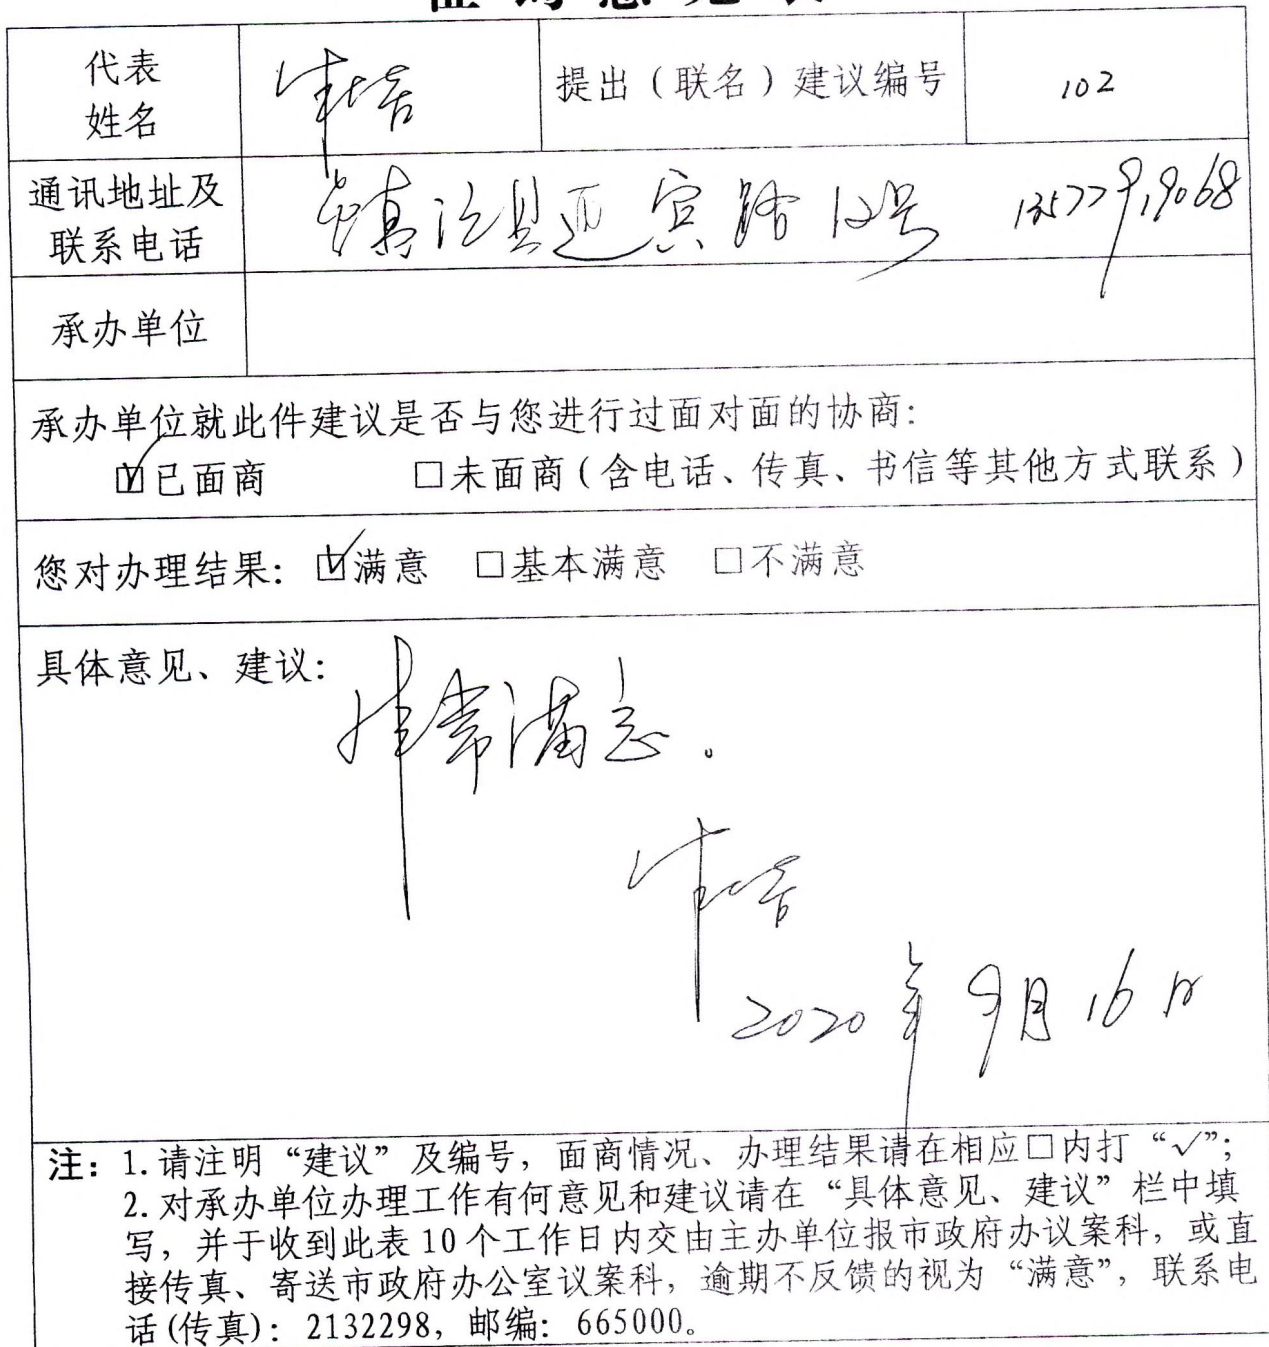 代表
姓名
提出（联名）建议编号
102
通讯地址及
联系电话
镇沅县迎宾路12号 13577919068
承办单位
承办单位就此件建议是否与您进行过面对面的协商：
☑已面商 □未面商（含电话、传真、书信等其他方式联系）
您对办理结果：☑满意 □基本满意 □不满意
具体意见、建议：
非常满意。
2020年9月16日
注：1.请注明“建议”及编号，面商情况、办理结果请在相应□内打“√”；
2.对承办单位办理工作有何意见和建议请在“具体意见、建议”栏中填
写，并于收到此表10个工作日内交由主办单位报市政府办议案科，或直
接传真、寄送市政府办公室议案科，逾期不反馈的视为“满意”，联系电
话(传真)：2132298，邮编：665000。